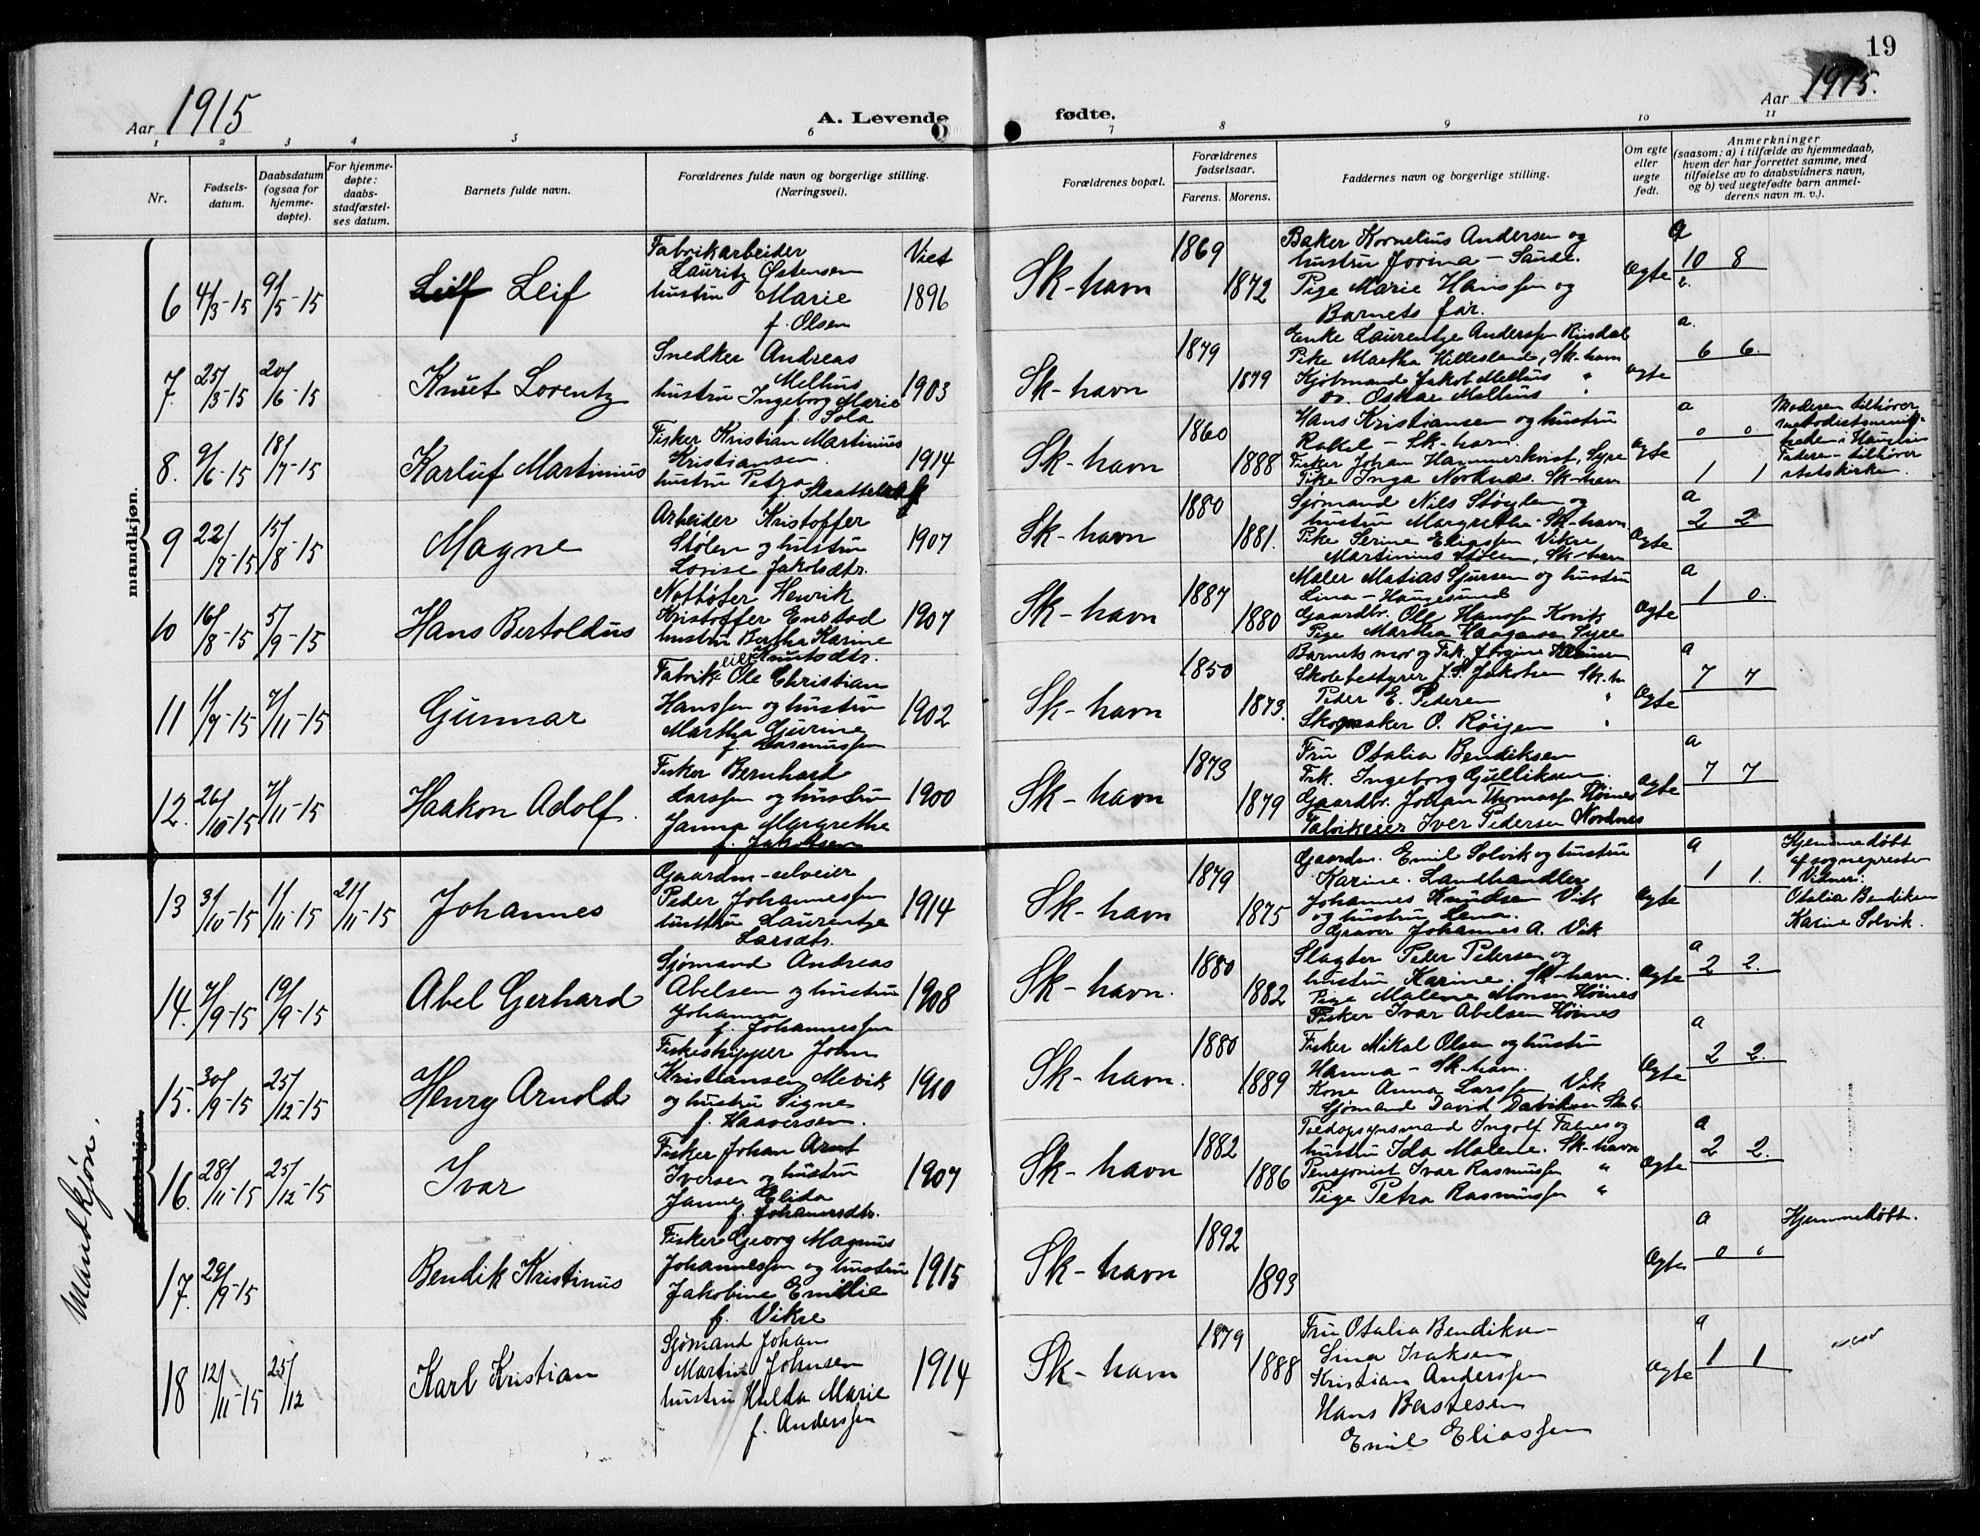 19
Aar 1915
A. Levende fødte.
Aar 1915.
1 2 3 4 5 6 7 8 9 10 11
Nr.
Fødsels-
datum.
Daabsdatum
(ogsaa for
hjemme-
døpte).
For hjemme-
døpte:
daabs-
stadfæstel-
ses datum.
Barnets fulde navn.
Forældrenes fulde navn og borgerlige stilling.
(Næringsvei).
Forældrenes bopæl.
Forældrenes
fødselsaar.
Farens. Morens.
Faddernes navn og borgerlige stilling.
Om egte
eller
uegte
født.
Anmerkninger
(saasom: a) i tilfælde av hjemmedaab,
hvem der har forrettet samme, med
tilføielse av to daabsvidners navn,
og b) ved uegtefødte barn anmel-
derens navn m. v.).
mandkjøn.
6 4/3-15 9/5-15 Leif Leif
Fabrikarbeider
Lauritz Østensen
hustru Marie
f. Olsen
Viet
1896
Sk-havn 1869 1872
Baker Kornelius Andersen og
hustru Jorina - Sande.
Pige Marie Hanssen og
Barnets far.
Ægte
a
10 8
7. 25/3-15 20/6-15 Knut Lorentz
Snedker Andreas
Melhus
hustru Ingeborg Marie
f. Sola
1903
Sk-havn 1879 1879
Enke Laurentze Anderssen Rinsdal
Pike Martha Hillesland, Sk-havn
Kjøbmand Jakob Melhus "
do. Oskar Melhus "
Ægte
a.
6 6.
8. 9/6-15 18/7-15 Karluf Martinius
Fisker Kristian Martinius
Kristiansen.
hustru Petra
1914
Sk-havn 1860 1888
Hans Kristiansen og hustru
Rakel - Sk-havn.
Fisker Johan Hammerkvist, Syre
Pike Inga Nordnæs. Sk-havn
Ægte
a
0 0
1 1
Moderen tilhører
metodistmenig-
heden i Haugesun
Faderen tilhører
statskirken.
9 22/7-15 15/8-15 Magne
Arbeider Kristoffer
Stølen og hustru
Lovise Jakobsdtr.
1907
Sk-havn 1880 1881.
Sjømand Nils Støylen og
hustru Margrethe. Sk-havn
Pike Serine Eliassen Vikre
Martinius Stølen, Sk-havn
Ægte
a
2 2
10 16/8-15 5/9-15 Hans Bertoldus
Notbøter Henrik
Kristoffer Enstad
hustru Bertha Karine
Knutsdtr.
1907
Sk-havn 1887 1880
Maler Matias Sjursen og hustru
Lina - Haugesund
Gaardbr. Ole Hanssen Kovik
Pige Martha Haagansen Syre
Ægte
a
1 0.
11 11/9-15 7/11-15 Gunnar
Fabrikeier Ole Christian
Hanssen og hustru
Martha Gurine
f. Rasmussen
1902
Sk-havn 1850 1873.
Barnets mor og Frk. Jørgine Klausen
Skolebestyrer J. S. Jakobsen Sk.h
Peder E. Pedersen "
Skomaker O. Røigen "
Ægte
a
7 7
12. 26/10-15 7/11-15 Haakon Adolf.
Fisker Bernhard
Larssen og hustru
Janna Margrethe
f. Jakobsen
1900
Sk-havn 1873 1879
Fru Otalia Bendiksen
Frk. Ingeborg Gulliksen.
Gaardbr. Johan Thomassen Høines
Fabrikeier Iver Pedersen Nordnes
Ægte
a
7 7
13 31/10-15 1/11-15 21/11-15 Johannes
Gaardm-selveier
Peder Johannessen
hustru Laurentze
Larsdtr.
1914
Sk-havn 1879 1875
Gaardm. Emil Solvik og hustru
Karine. Landhandler
Johannes Knudsen Vik
og hustru Lena.
Graver Johannes A. Vik
Ægte
a
1 1.
Hjemmedøbt
af sognepresten
Vidner:
Otalia Bendiksen
Karine Solvik.
14. 7/9-15 19/9-15 Abel Gerhard
Sjømand Andreas
Abelsen og hustru
Johanna
f. Johannessen
1908
Sk-havn. 1880 1882
Slagter Peder Petersen og
hustru Karine, Sk-havn.
Pige Malene Monsen Høines
Fisker Ivar Abelsen Høines
Ægte
a
2 2.
15. 30/9-15 25/12-15 Henry Arnold
Fiskeskipper John
Kristiansen Mevik
og hustru Signe
f. Haaversen.
1910
Sk-havn. 1880 1889
Fisker Mikal Olsen og hustru
Hanna - Sk-havn.
Kone Anna Larssen Vik
Sjømand David Davidsen Sk.h.
Ægte
a
2 2.
Mandkjøn.
16. 28/11-15 25/12-15 Ivar
Fisker Johan Arnt
Iversen og hustru
Janne Elida
f. Johannesdtr.
1907
Sk-havn 1882 1886
Toldopsynsmand Ingolf Falnes og
hustru Ida Malene. Sk-havn
Pensjonist Ivar Rasmussen "
Pige Petra Rasmussen "
Ægte
a
2 2.
17. 29/9-15 Bendik Kristinus
Fisker Georg Magnus
Johannessen og hustru
Jakobine Emilie
f. Vikre
1915
Sk-havn 1892 1893
Ægte
a
0 0
Hjemmedøbt.
18 12/11-15 25/12 Karl Kristian
Sjømand Johan
Martin Johnsen
hustru Hilda Marie
f. Anderssen
1914
Sk-havn 1879 1888
Fru Otalia Bendiksen
Lina Isaksen
Kristian Anderssen
Hans Bastesen
Emil Eliassen
Ægte
a
1 1